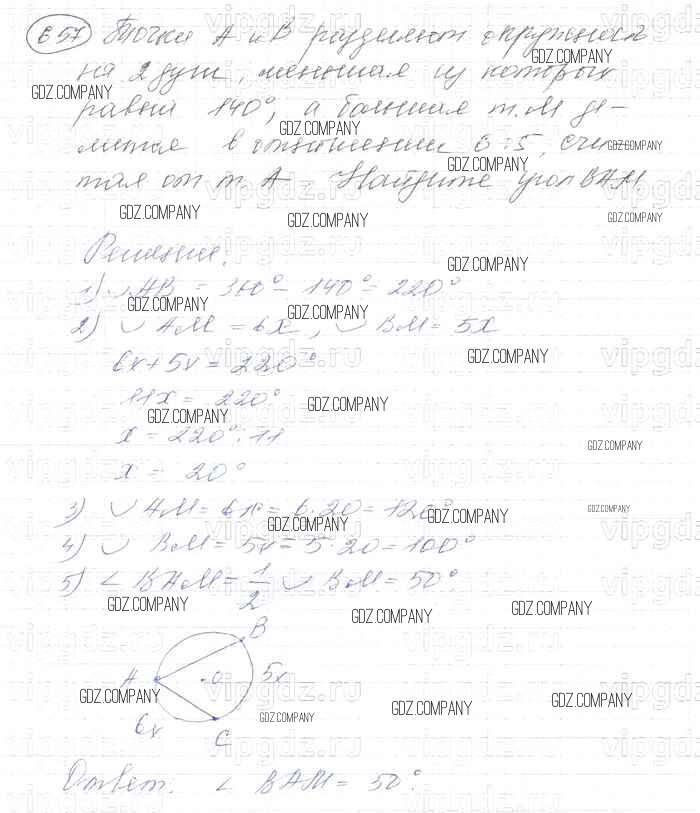 657 Точки А и В разделяют окружность
на 2 дуги, меньшая из которых
равна 140°, а большая т. М де-
лится в отношении 6:5, счи-
тая от т. А Найдите угол ВАМ.
Решение.
1) ◡ АВ = 360° - 140° = 220°
2) ◡ АМ = 6x, ◡ ВМ = 5x
6x + 5x = 220°
11x = 220°
x = 220° : 11
x = 20°
3) ◡ АМ = 6x = 6·20 = 120°
4) ◡ ВМ = 5x = 5·20 = 100°
5) ∠ ВАМ = 1/2 ◡ ВМ = 50°
В
А О 5x
6x
С
Ответ: ∠ ВАМ = 50°.